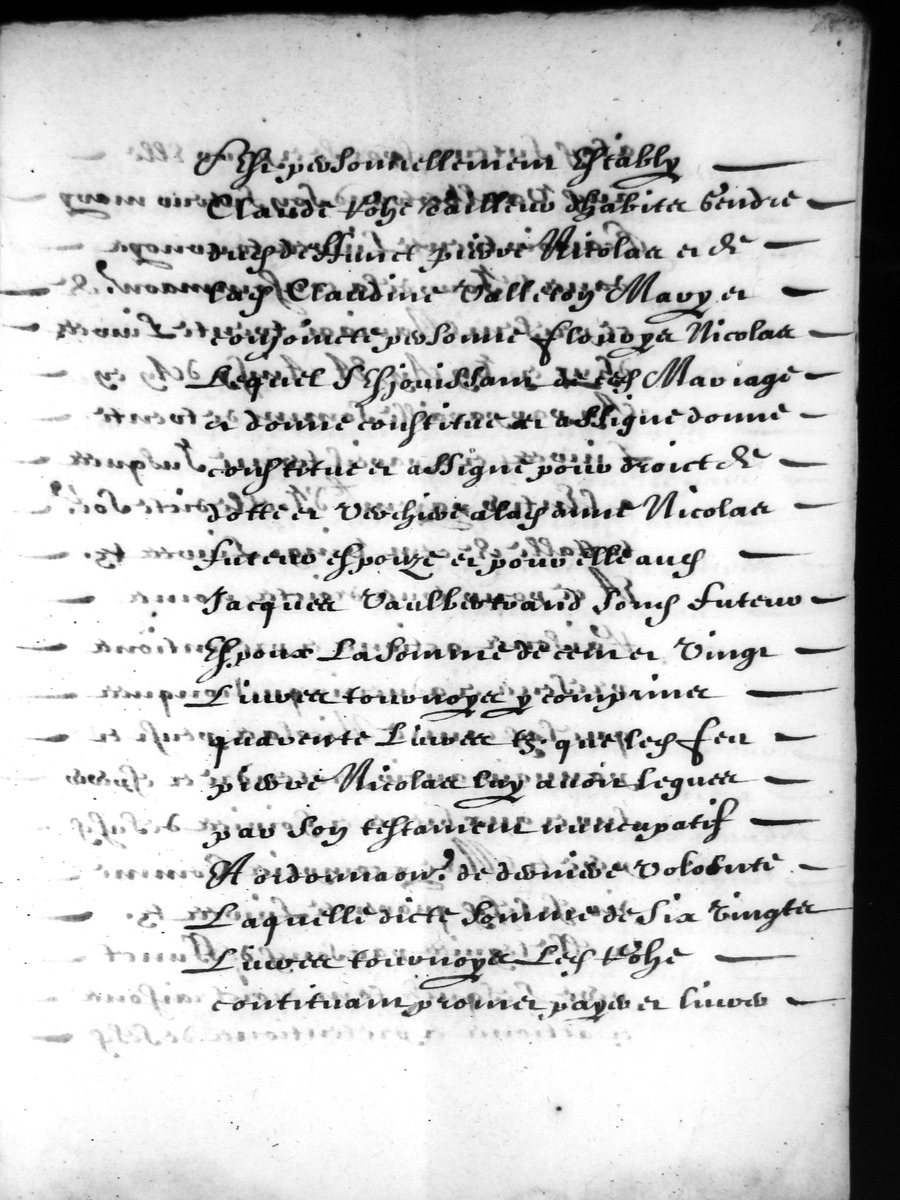 S'est personnellement estably
Claude Rohe tailleur d'habitz gendre
dud. deffunct pierre Nicolas et de
lad. Claudine Valleton Mary et
conjoincte personne flouryes Nicolas
Lequel s'esjouissant de ced. Mariage
et donne constitue et assigne donne
constitue et assigne pour droict de
dotte et verchiere a lad. anne Nicolas
futeure espouze et pour elle aud.
Jacques Vaulbertrand sond. futeur
Espoux La somme de cent et Vingt
Liures tournoyes y comprines
quarente Liures tz. que led. feu
pierre Nicolas luy auoit legues
par son testament nuncupatif
Et ordonnaon. de derniere Volonte
Laquelle dicte somme de six vingtz
Liures tournoyes Led. Rohe
contituant promet payer et liurer